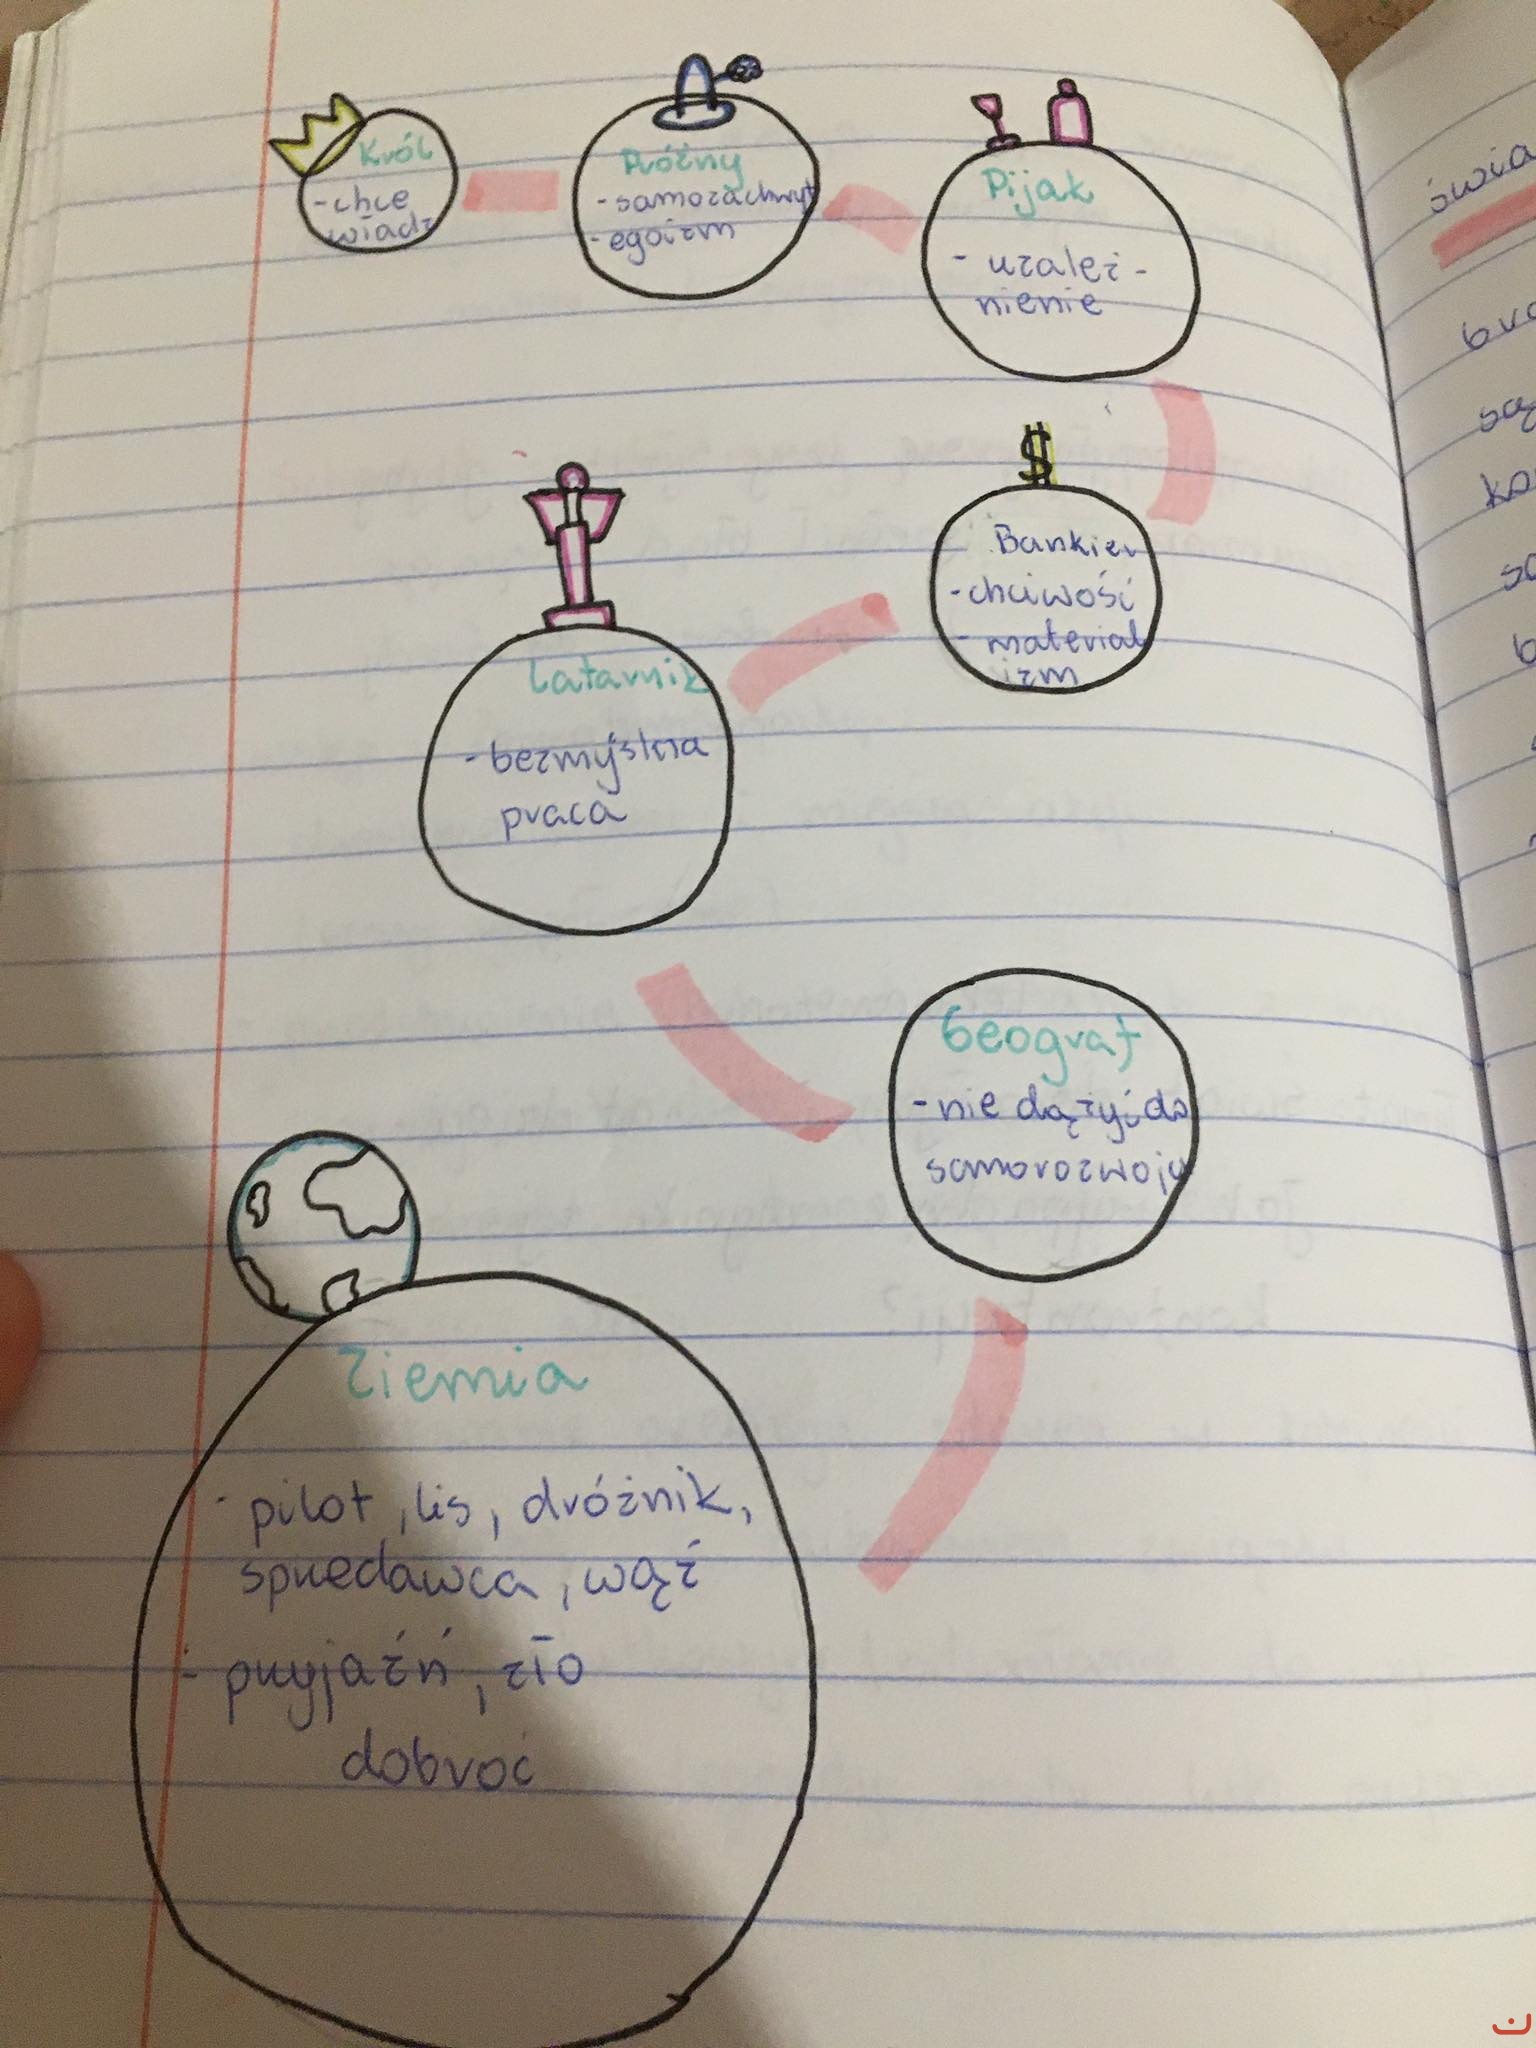 Król
- chce
władz
Próżny
- samozachwyt
- egoizm
Pijak
- uzależ -
nienie
$
Bankier
- chciwość
- material
izm
Latarnik
- bezmyślna
praca
Geograf
- nie dąży do
samorozwoju
Ziemia
- pilot, lis, dróżnik,
sprzedawca, wąż
- przyjaźń, zło
dobroć